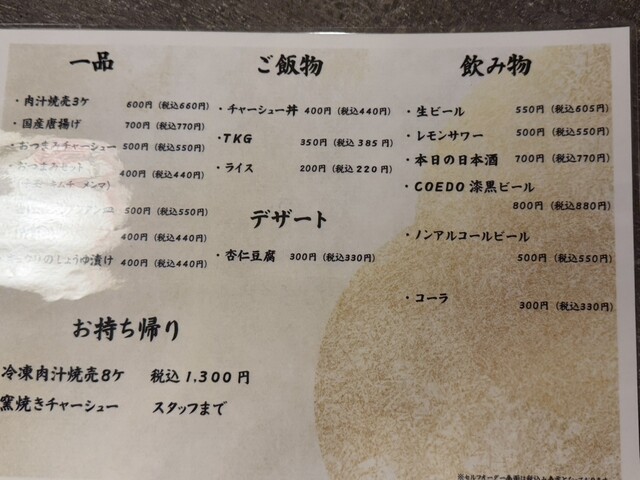 一品
・肉汁焼売3ケ 600円(税込660円)
・国産唐揚げ 700円(税込770円)
・おつまみチャーシュー 500円(税込550円)
・おつまみセット 400円(税込440円)
500円(税込550円)
400円(税込440円)
のしょうゆ漬け 400円(税込440円)
お持ち帰り
冷凍肉汁焼売8ケ 税込1.300円
窯焼きチャーシュー スタッフまで
ご飯物
・チャーシュー丼 400円(税込440円)
・TKG 350円(税込385円)
・ライス 200円(税込220円)
デザート
・杏仁豆腐 300円(税込330円)
飲み物
・生ビール 550円(税込605円)
・レモンサワー 500円(税込550円)
・本日の日本酒 700円(税込770円)
・COEDO漆黒ビール
800円(税込880円)
・ノンアルコールビール
500円(税込550円)
・コーラ
300円(税込330円)